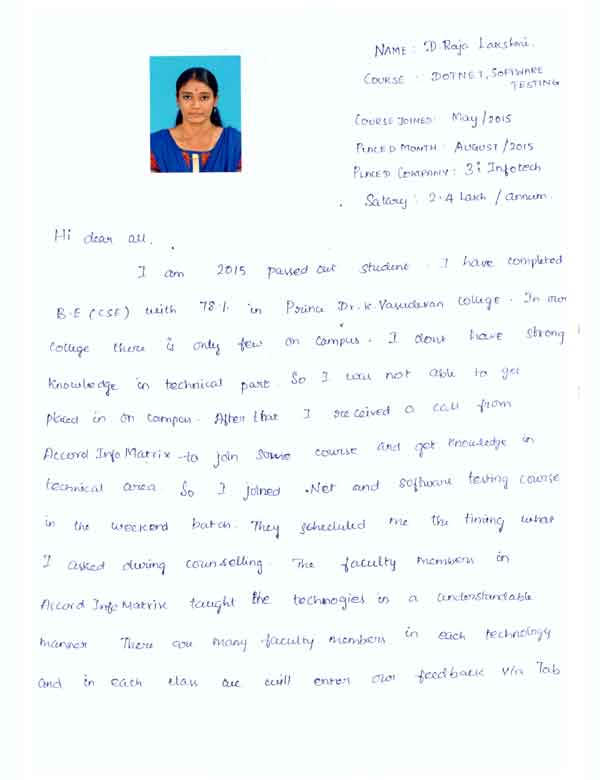 NAME : D. Raja Lakshmi.
COURSE : DOTNET, SOFTWARE
TESTING
COURSE JOINED : May/2015
PLACED MONTH : AUGUST/2015
PLACED COMPANY : 3i Infotech
Salary : 2.4 Lakh / annum.
Hi dear all,
I am 2015 passed out student. I have completed
B.E (CSE) with 78% in Prince Dr. K. Vasudevan college. In our
college there is only few on campus. I dont have strong
knowledge in technical part. So I was not able to get
placed in on campus. After that I received a call from
Accord Info Matrix to join some course and get knowledge in
technical area. So I joined .Net and software testing course
in the weekend batch. They scheduled me the timing what
I asked during counselling. The faculty members in
Accord Info Matrix taught the technogies in a understandable
manner. There are many faculty members in each technology
and in each class we will enter our feedback via Tab